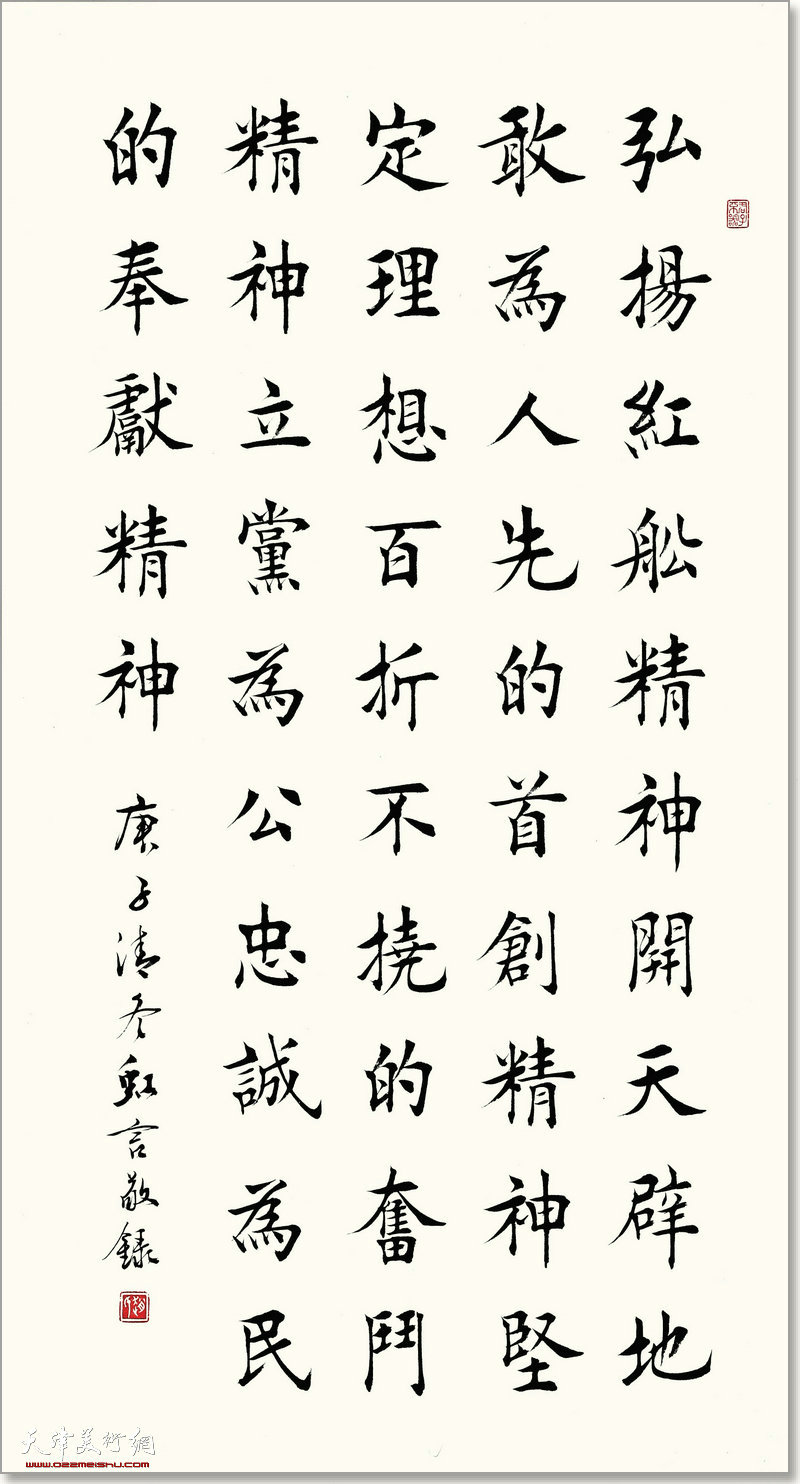 弘揚紅舩精神開天辟地
敢為人先的首創精神堅
定理想百折不撓的奮鬥
精神立黨為公忠誠為民
的奉獻精神
庚子清冬虹言敬録
天津美術網
www.022meishu.com